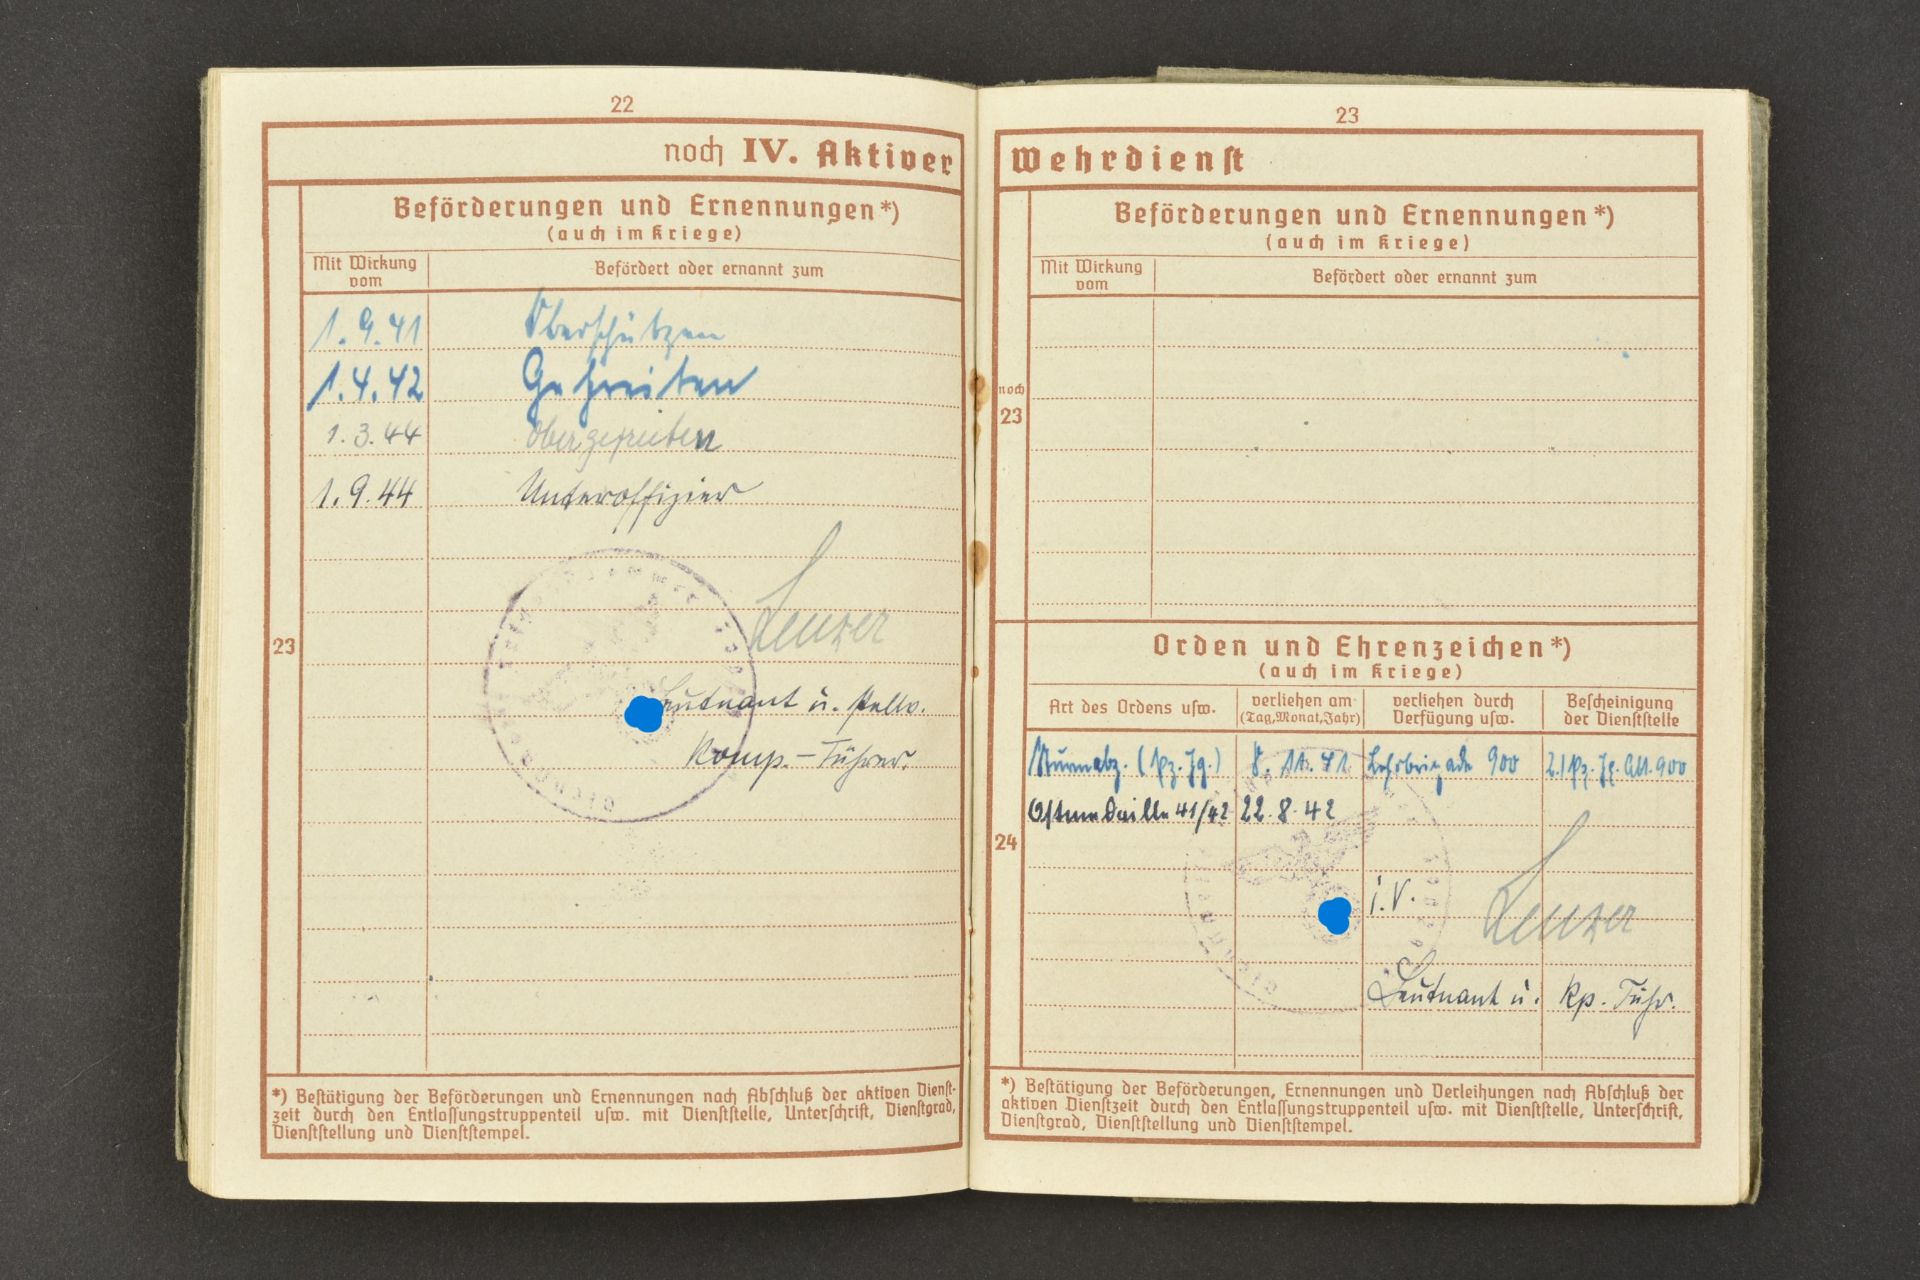 22
noch IV. Aktiver
Beförderungen und Ernennungen*)
(auch im Kriege)
Mit Wirkung vom
Befördert oder ernannt zum
1.9.41 Oberschützen
1.4.42 Gefreiten
1.3.44 Obergefreiten
1.9.44 Unteroffizier
23
Leutnant u. stellv.
Komp.-Führer.
*) Bestätigung der Beförderungen und Ernennungen nach Abschluß der aktiven Dienst-
zeit durch den Entlassungstruppenteil usw. mit Dienststelle, Unterschrift, Dienstgrad,
Dienststellung und Dienststempel.
23
Wehrdienst
Beförderungen und Ernennungen*)
(auch im Kriege)
Mit Wirkung vom
Befördert oder ernannt zum
noch
23
Orden und Ehrenzeichen*)
(auch im Kriege)
Art des Ordens usw.
verliehen am (Tag, Monat, Jahr)
verliehen durch Verfügung usw.
Bescheinigung der Dienststelle
Sturmabz. (Pz. Jg.) 8.11.41 Lehrbrigade 900 2./Pz. Jg. Abt. 900
Ostmedaille 41/42 22.8.42
24
i.V.
Leutnant u. Kp. Führ.
*) Bestätigung der Beförderungen, Ernennungen und Verleihungen nach Abschluß der
aktiven Dienstzeit durch den Entlassungstruppenteil usw. mit Dienststelle, Unterschrift,
Dienstgrad, Dienststellung und Dienststempel.